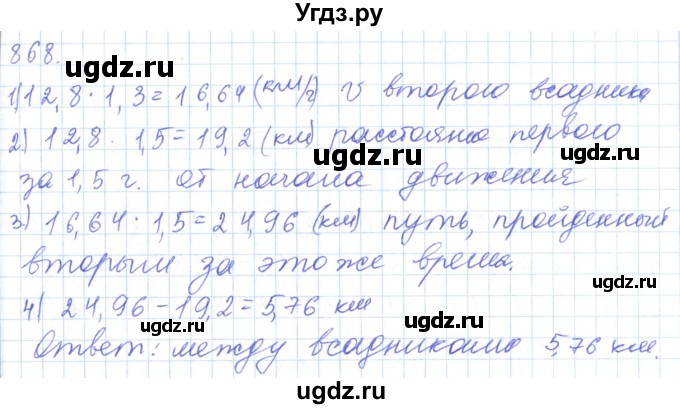 Угдз.ру
868.
ugdz.ru
1) 12,8 · 1,3 = 16,64 (км/г) V второго всадника
2) 12,8 · 1,5 = 19,2 (км) расстояние первого
ugdz.ru
ugdz.ru
за 1,5 г. от начала движения
3) 16,64 · 1,5 = 24,96 (км) путь, пройденный
ugdz.ru
вторым за это же время.
ugdz.ru
4) 24,96 - 19,2 = 5,76 км
ugdz.ru
Ответ: между всадниками 5,76 км.
ugdz.ru
ugdz.ru